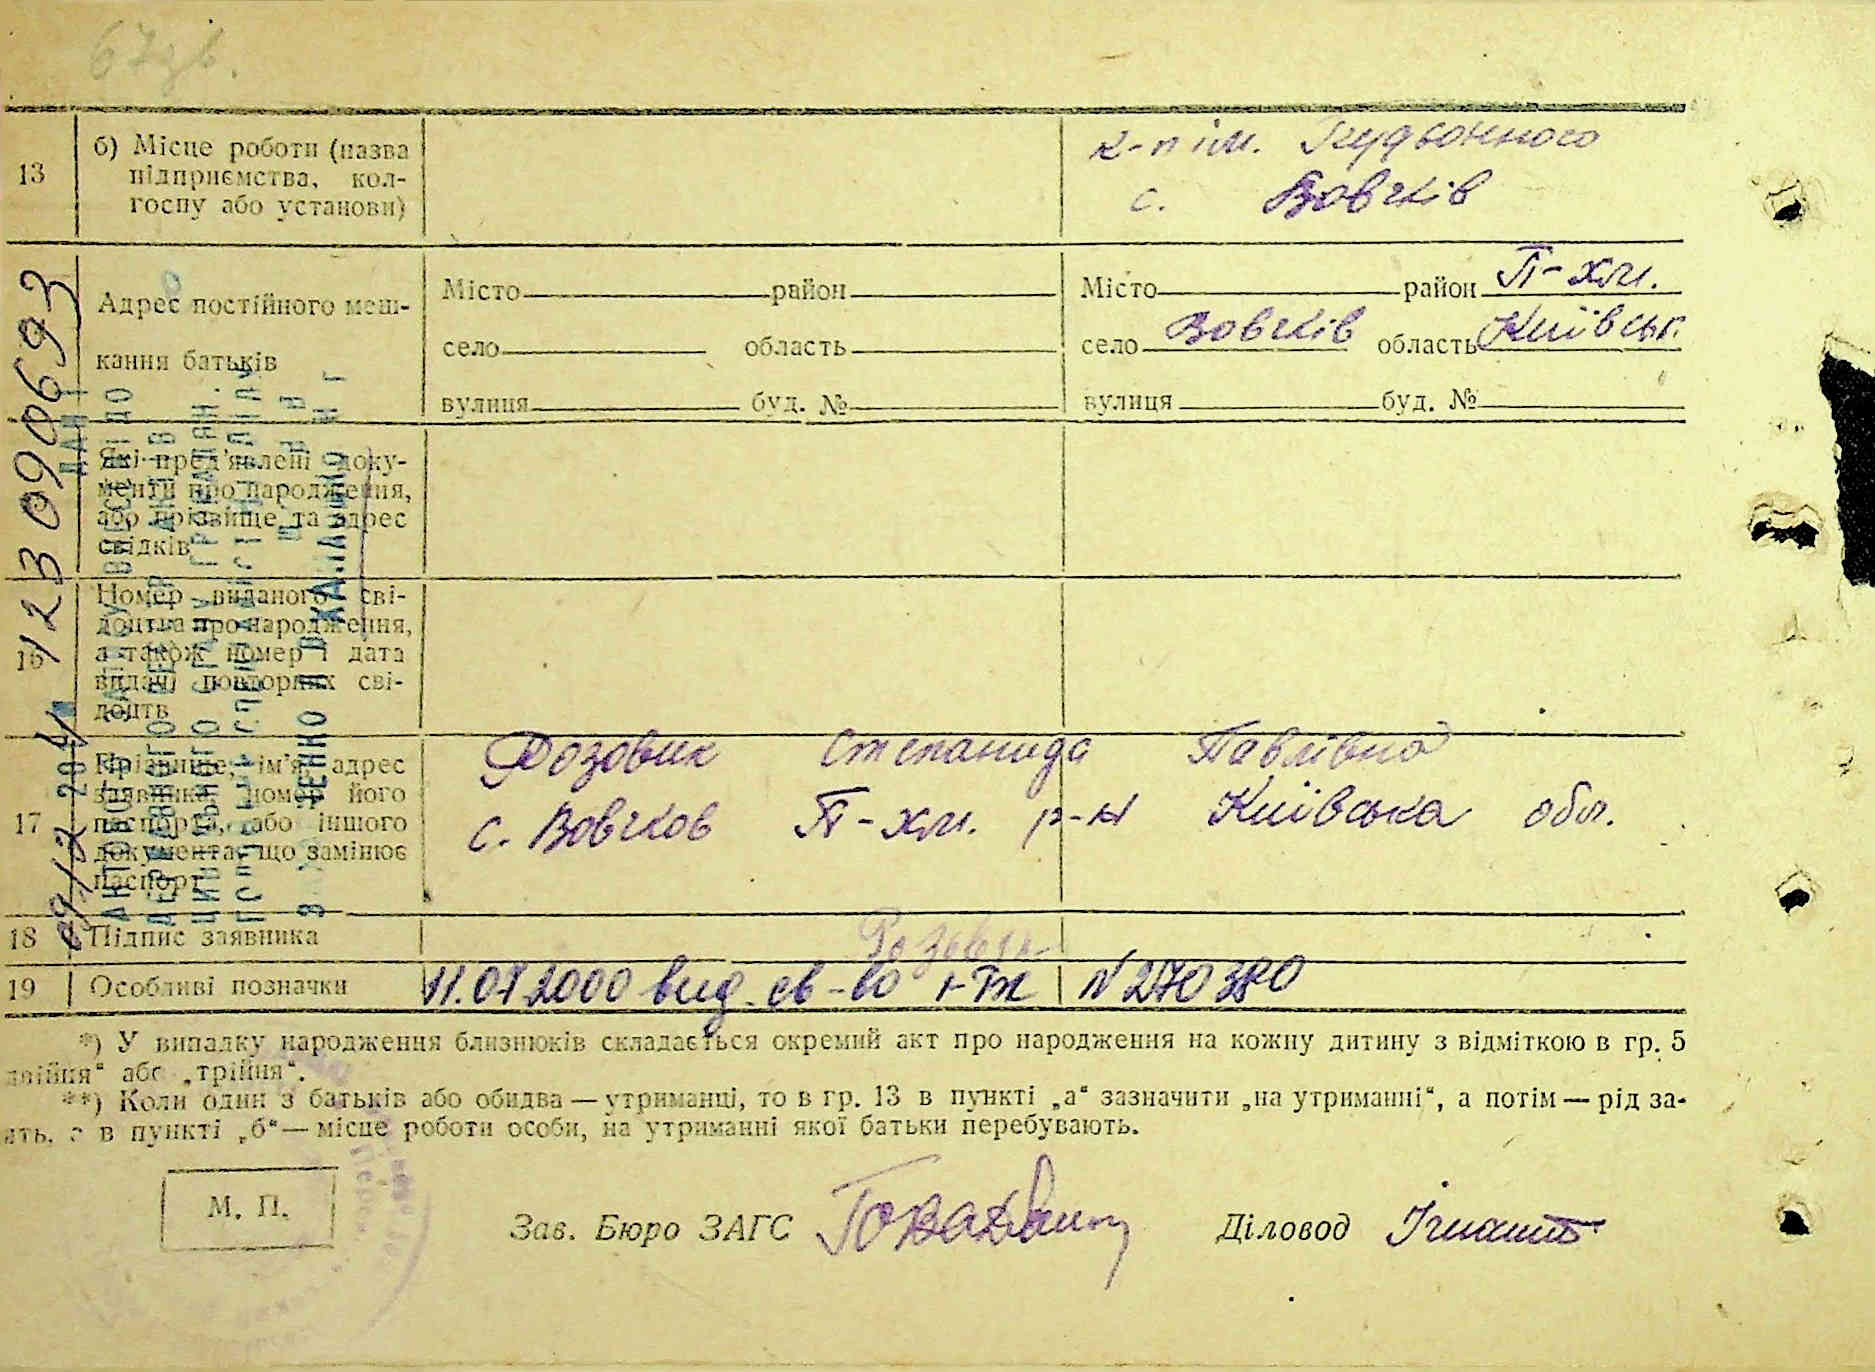 67зв.
13
б) Місце роботи (назва
підприємства, кол-
госпу або установи)
к-п ім. Будьонного
с. Вовчків
Адрес постійного меш-
кання батьків
Місто район
село область
вулиця буд. №
Місто район П-хм.
село Вовчків область Київськ.
вулиця буд. №
Які пред'явлені доку-
менти про народження,
або прізвище та адрес
свідків
16
Номер виданого сві-
доцтва про народження,
а також номер і дата
видачі повторних сві-
доцтв
17
Прізвище, ім'я, адрес
заявника, номер його
паспорта, або іншого
документа, що замінює
паспорт
Розовик Степанида Павлівна
с. Вовчков П-хм. р-н Київська обл.
18 Підпис заявника
Розовик
19 Особливі позначки
11.01.2000 вид. св-во І-ТЖ N 270380
*) У випадку народження близнюків складається окремий акт про народження на кожну дитину з відміткою в гр. 5
двійня“ або „трійня“.
**) Коли один з батьків або обидва — утриманці, то в гр. 13 в пункті „а“ зазначити „на утриманні“, а потім — рід за-
ять, а в пункті „б“ — місце роботи особи, на утриманні якої батьки перебувають.
М. П.
Зав. Бюро ЗАГС
Діловод
123090693